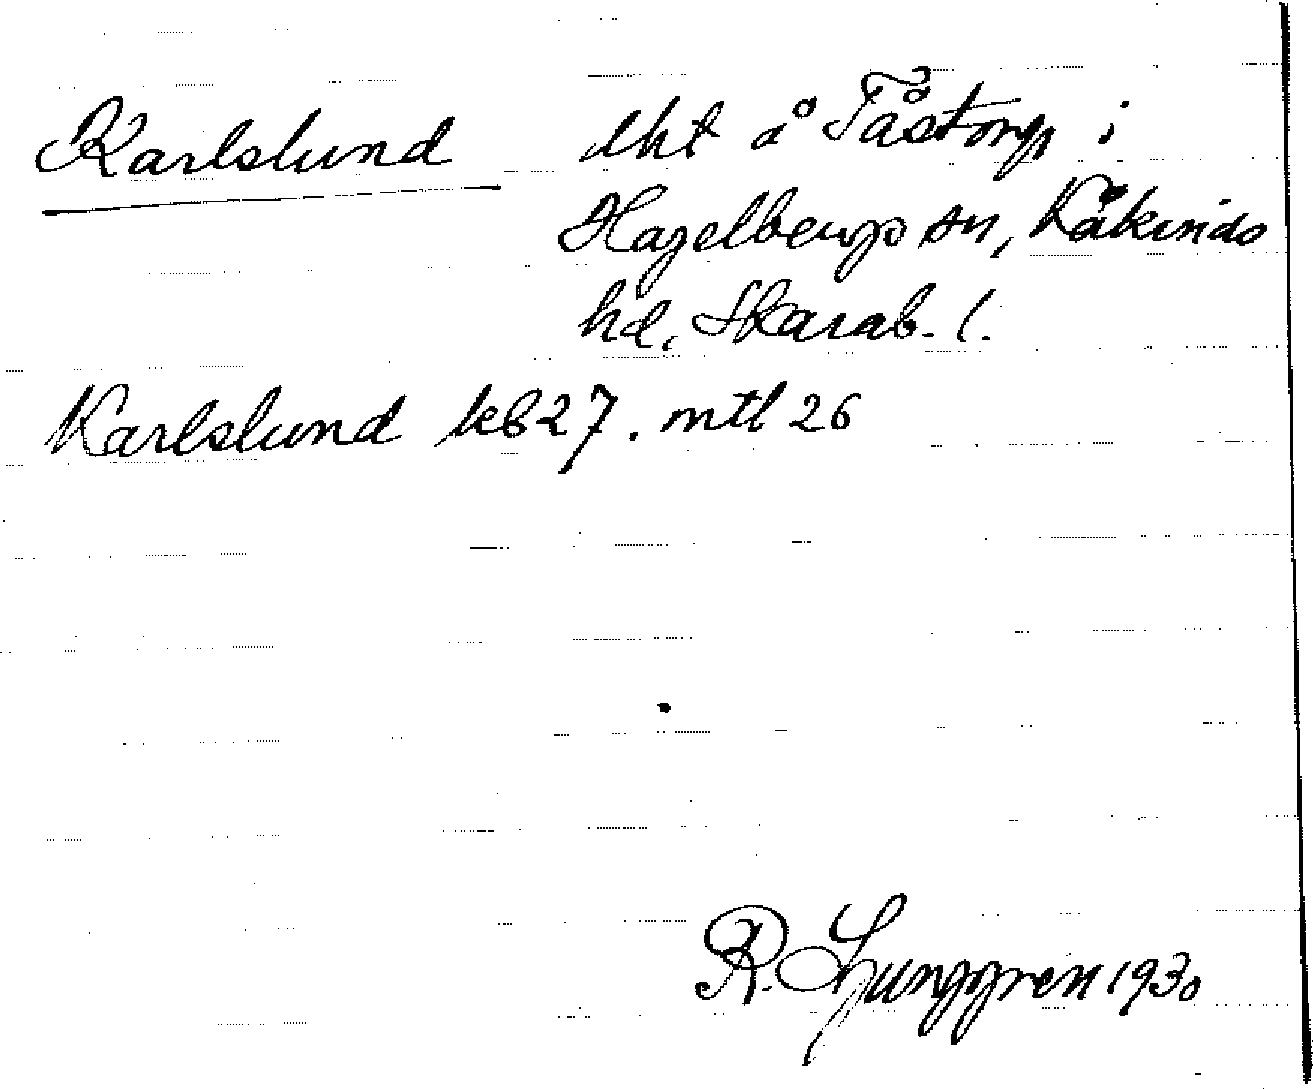 Karlslund lht å Tåstorp i
Hagelbergs sn, Kåkinds
hd, Skarab. l.
Karlslund kb 27. mtl 26
R. Ljunggren 1930